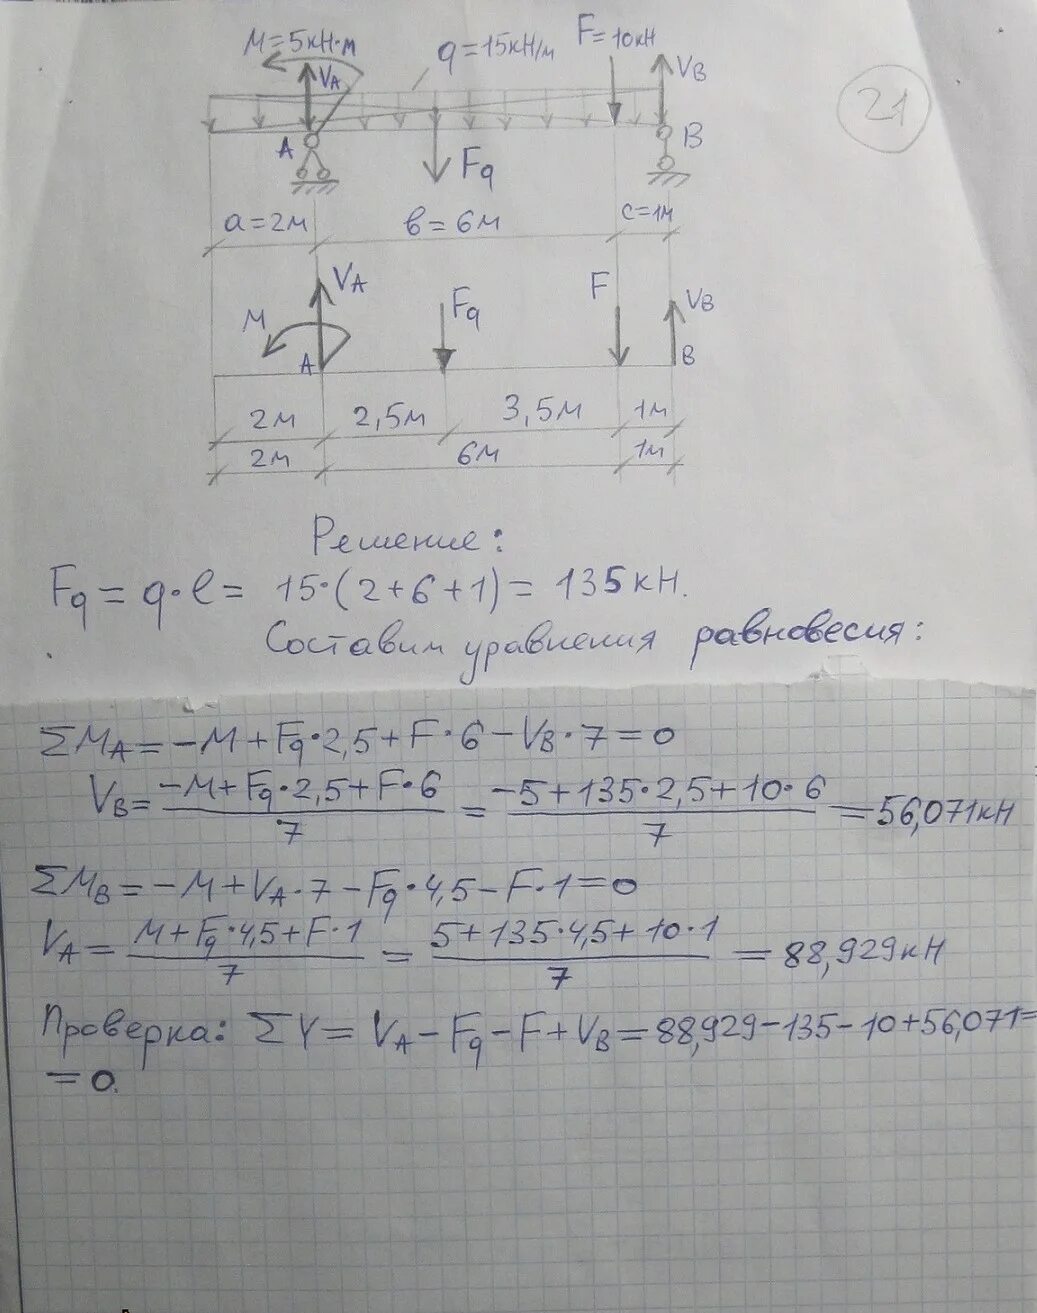 M=5кН·м
q=15кН/м
F=10кН
VA
VB
21
A
Fq
B
a=2м
в=6м
c=1м
VA
M
Fq
F
VB
A
B
2м 2,5м 3,5м 1м
2м 6м 1м
Решение:
Fq = q·ℓ = 15·(2+6+1) = 135кН.
Составим уравнения равновесия:
ΣMA = -M + Fq·2,5 + F·6 - VB·7 = 0
VB = (-M+Fq·2,5+F·6)/7 = (-5+135·2,5+10·6)/7 = 56,071кН
ΣMB = -M + VA·7 - Fq·4,5 - F·1 = 0
VA = (M+Fq·4,5+F·1)/7 = (5+135·4,5+10·1)/7 = 88,929кН
Проверка: ΣY = VA - Fq - F + VB = 88,929-135-10+56,071=
= 0.